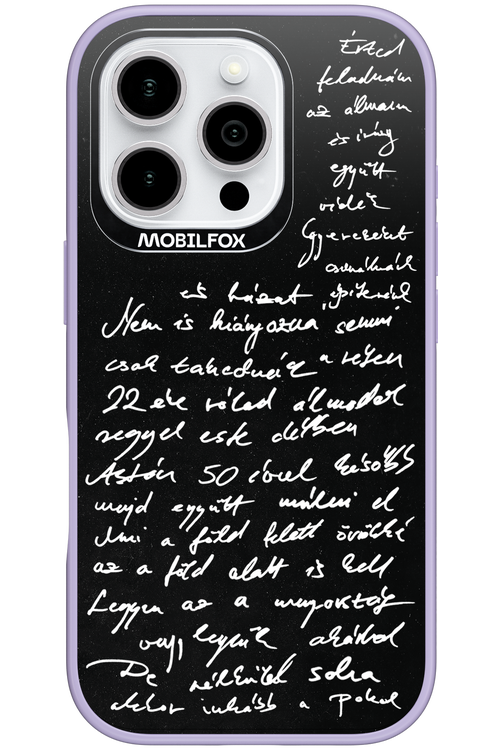 MOBILFOX
Érted
feladnám
az álmaim
és így
együtt
veled
Gyerekeket
csinálnánk
és házat építenénk
Nem is hiányozna semmi
csak takednál a részem
22 éve rólad álmodok
reggel este délben
Aztán 50 évvel később
majd együtt múlni el
Ami a föld felett örökké
az a föld alatt is kell
Legyen az a mennyország
vagy legyünk akárhol
De nélküled soha
akkor inkább a pokol